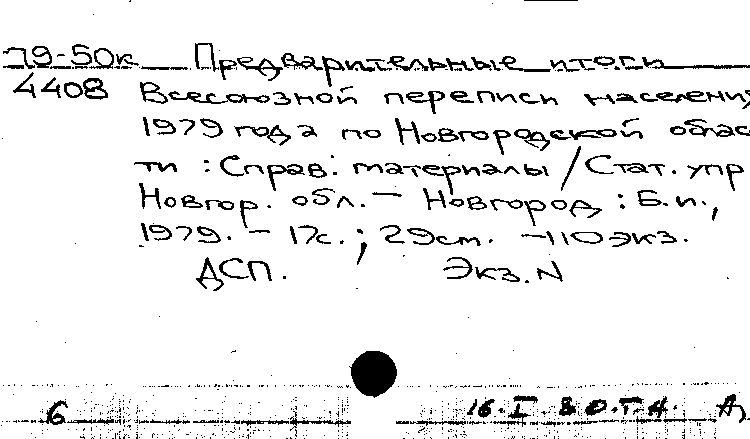 79-50к Предварительные итоги
4408 Всесоюзной переписи населения
1979 года по Новгородской облас
ти : Справ. материалы / Стат. упр
Новгор. обл. — Новгород : Б.и.,
1979. — 17с. ; 29см. — 110 экз.
ДСП. Экз. N
6 16.I.80. Т.А. А,